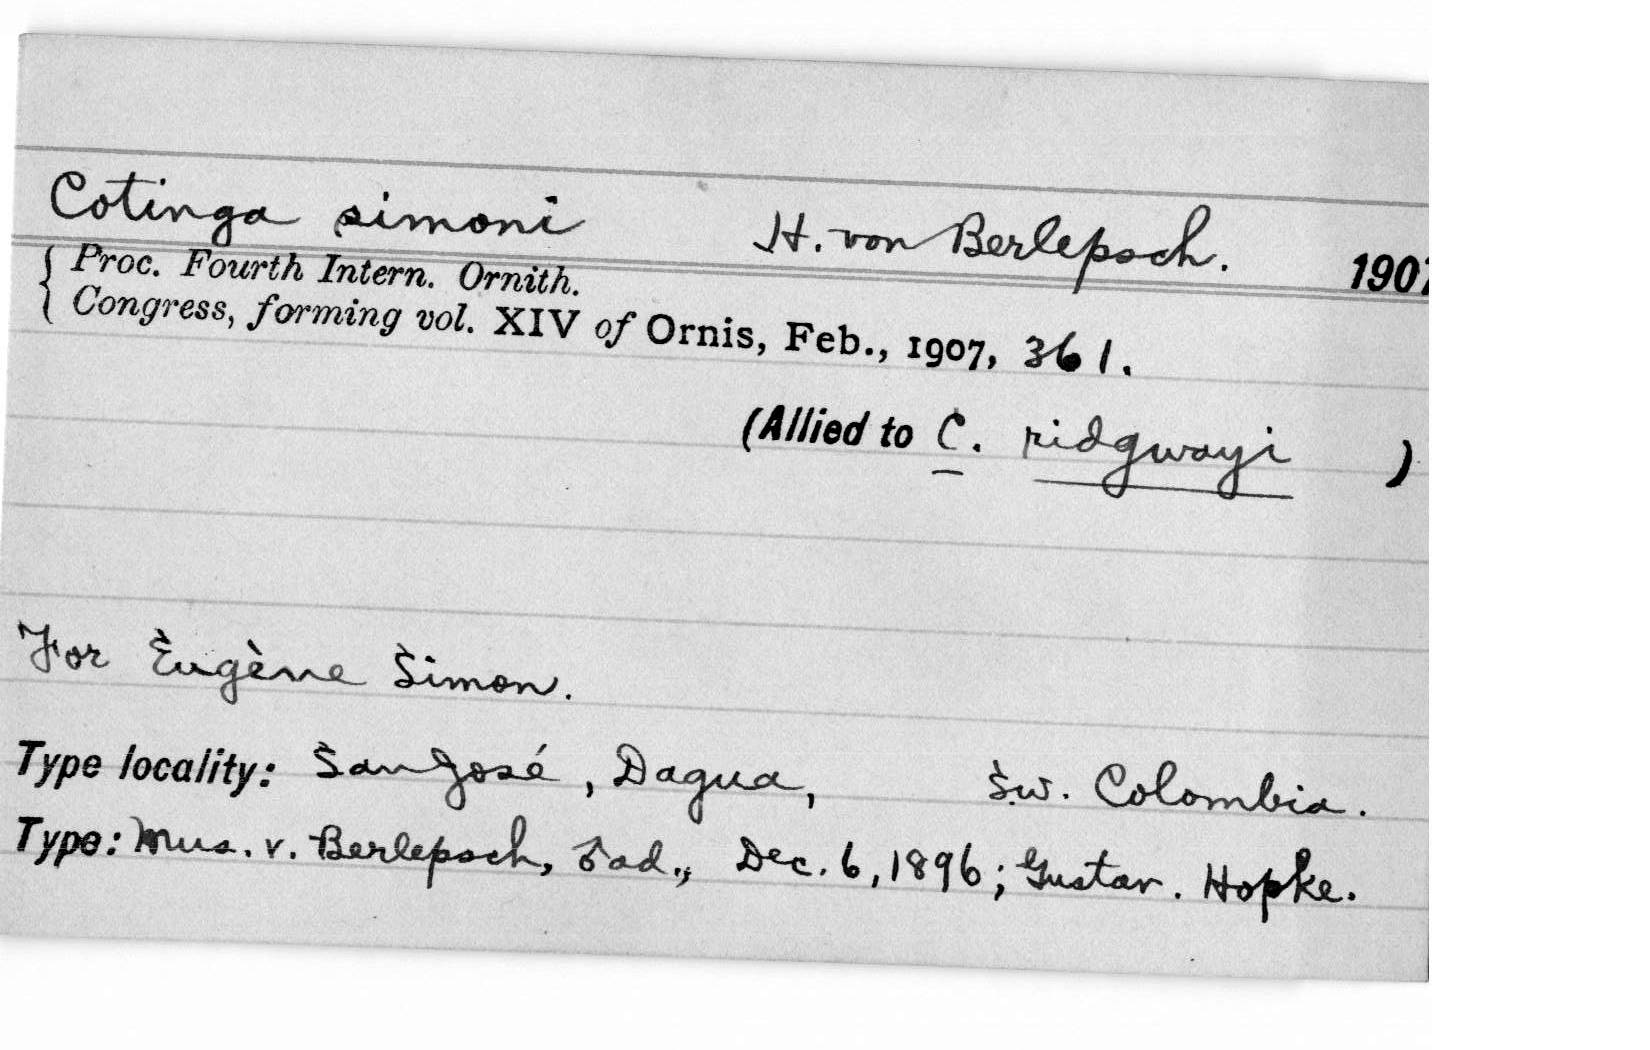 Cotinga simoni H. von Berlepsch. 1907
Proc. Fourth Intern. Ornith.
Congress, forming vol. XIV of Ornis, Feb., 1907, 361.
(Allied to C. ridgwayi )
For Eugène Simon.
Type locality: San José, Dagua, S.W. Colombia.
Type: Mus. v. Berlepsch, ♂ ad., Dec. 6, 1896; Gustav. Hopke.